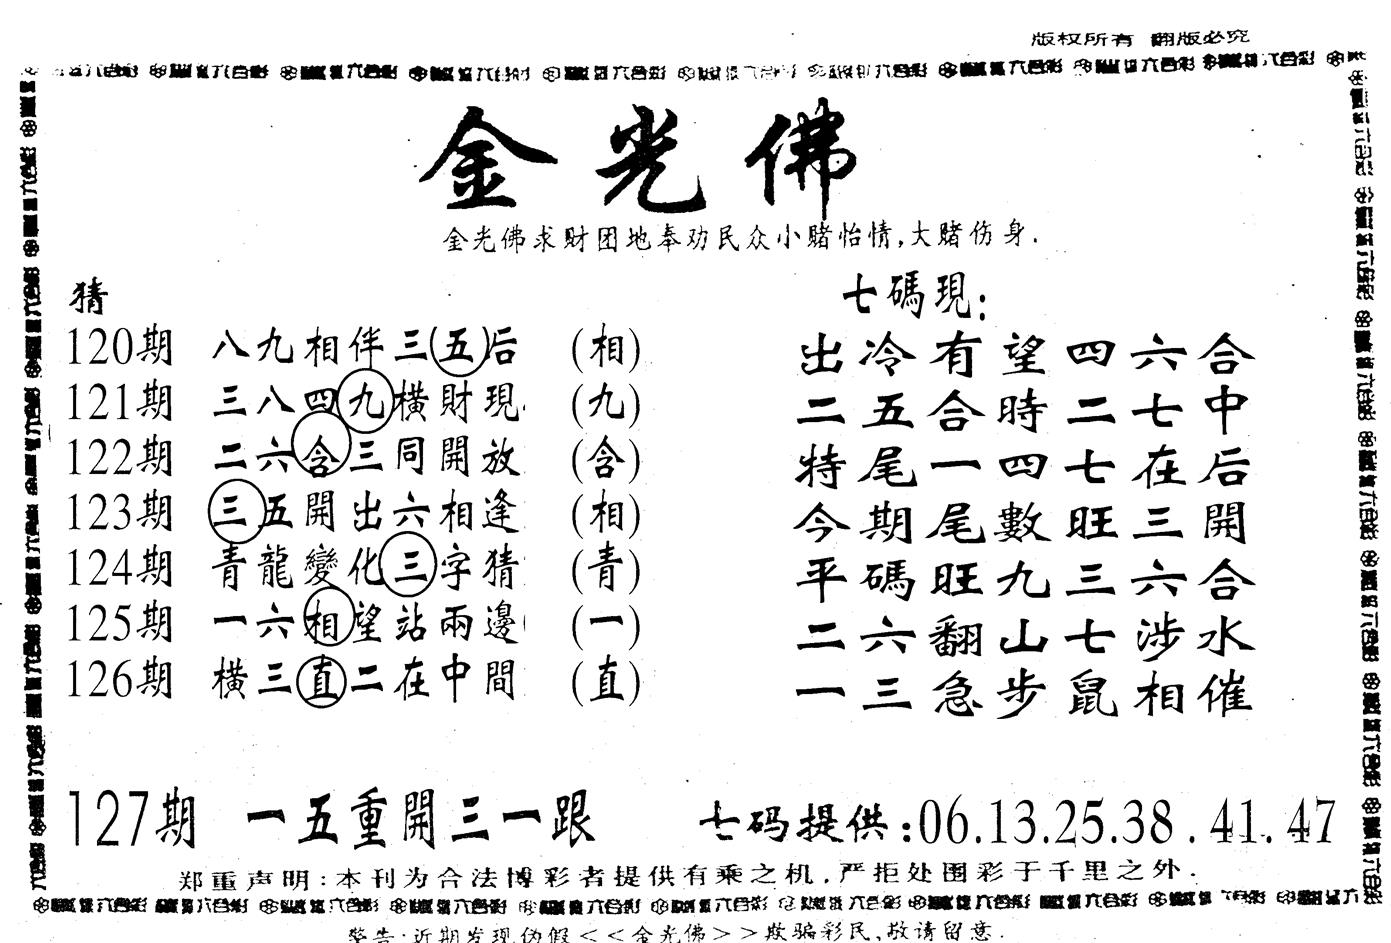 版权所有 翻版必究
金光佛
金光佛求财团地奉劝民众小赌怡情,大赌伤身.
猜
七碼現:
120期 八九相伴三(五)后 (相) 出冷有望四六合
121期 三八四九橫財現 (九) 二五合時二七中
122期 二六含三同開放 (含) 特尾一四七在后
123期 三五開出六相逢 (相) 今期尾數旺三開
124期 青龍變化三字猜 (青) 平碼旺九三六合
125期 一六相望站兩邊 (一) 二六翻山七涉水
126期 橫三直二在中間 (直) 一三急步鼠相催
127期 一五重開三一跟 七码提供:06.13.25.38.41.47
郑重声明:本刊为合法博彩者提供有乘之机.严拒处圈彩于千里之外.
警告:近期发现伪假<<金光佛>>欺骗彩民,敬请留意.